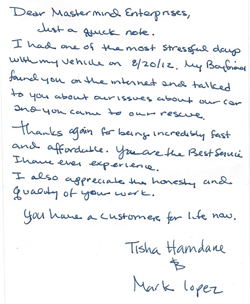 Dear Mastermind Enterprises,
Just a quick note.
I had one of the most stressful days
with my vehicle on 8/20/12. My Boyfriend
found you on the internet and talked
to you about our issues about our car
and you came to our rescue.
Thanks again for being incredibly fast
and affordable. You are the Best Service
I have ever experience.
I also appreciate the honesty and
quality of your work.
You have a customers for life now.
Tisha Hamdane
&
Mark Lopez